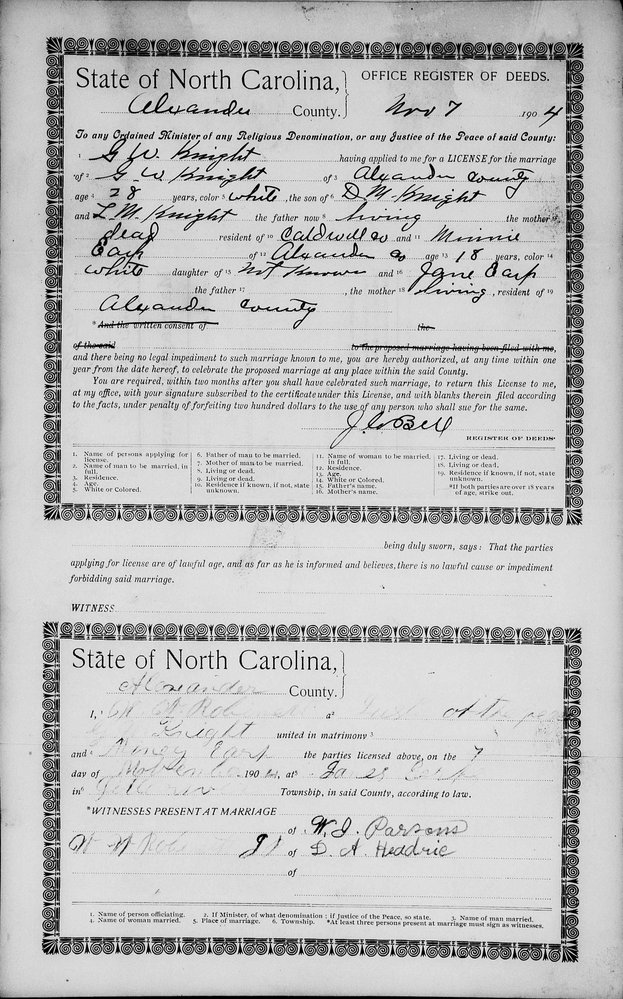 State of North Carolina, OFFICE REGISTER OF DEEDS.
Alexander County. Nov 7 1904
To any Ordained Minister of any Religious Denomination, or any Justice of the Peace of said County:
1 G. W. Knight having applied to me for a LICENSE for the marriage
of 2 G. W Knight of 3 Alexander County
age 4 28 years, color 5 white, the son of 6 D M. Knight
and 7 L. M. Knight the father now 8 living the mother 9
dead resident of 10 Caldwell co and 11 Minnie
Earp of 12 Alexander co age 13 18 years, color 14
white daughter of 15 Not Known and 16 Jane Earp
the father 17 , the mother 18 living, resident of 19
Alexander County
*And the written consent of the
of the said to the proposed marriage having been filed with me,
and there being no legal impediment to such marriage known to me, you are hereby authorized, at any time within one
year from the date hereof, to celebrate the proposed marriage at any place within the said County.
You are required, within two months after you shall have celebrated such marriage, to return this License to me,
at my office, with your signature subscribed to the certificate under this License, and with blanks therein filed according
to the facts, under penalty of forfeiting two hundred dollars to the use of any person who shall sue for the same.
Bell
REGISTER OF DEEDS.
1. Name of persons applying for license.
2. Name of man to be married, in full.
3. Residence.
4. Age.
5. White or Colored.
6. Father of man to be married.
7. Mother of man to be married.
8. Living or dead.
9. Living or dead.
10. Residence if known, if not, state unknown.
11. Name of woman to be married, in full.
12. Residence.
13. Age.
14. White or Colored.
15. Father's name.
16. Mother's name.
17. Living or dead.
18. Living or dead.
19. Residence if known, if not, state unknown.
*If both parties are over 18 years of age, strike out.
being duly sworn, says: That the parties
applying for license are of lawful age, and as far as he is informed and believes, there is no lawful cause or impediment
forbidding said marriage.
WITNESS
State of North Carolina,
Alexander County.
I, 1 a 2 of the peace
Knight united in matrimony 3
and 4 Earp the parties licensed above, on the 7
day of November 190 at 5
in 6 Township, in said County, according to law.
*WITNESSES PRESENT AT MARRIAGE
of W. J. Parsons
W W of D. A Headric
of
1. Name of person officiating. 2. If Minister, of what denomination; if Justice of the Peace, so state. 3. Name of man married.
4. Name of woman married. 5. Place of marriage. 6. Township. *At least three persons present at marriage must sign as witnesses.